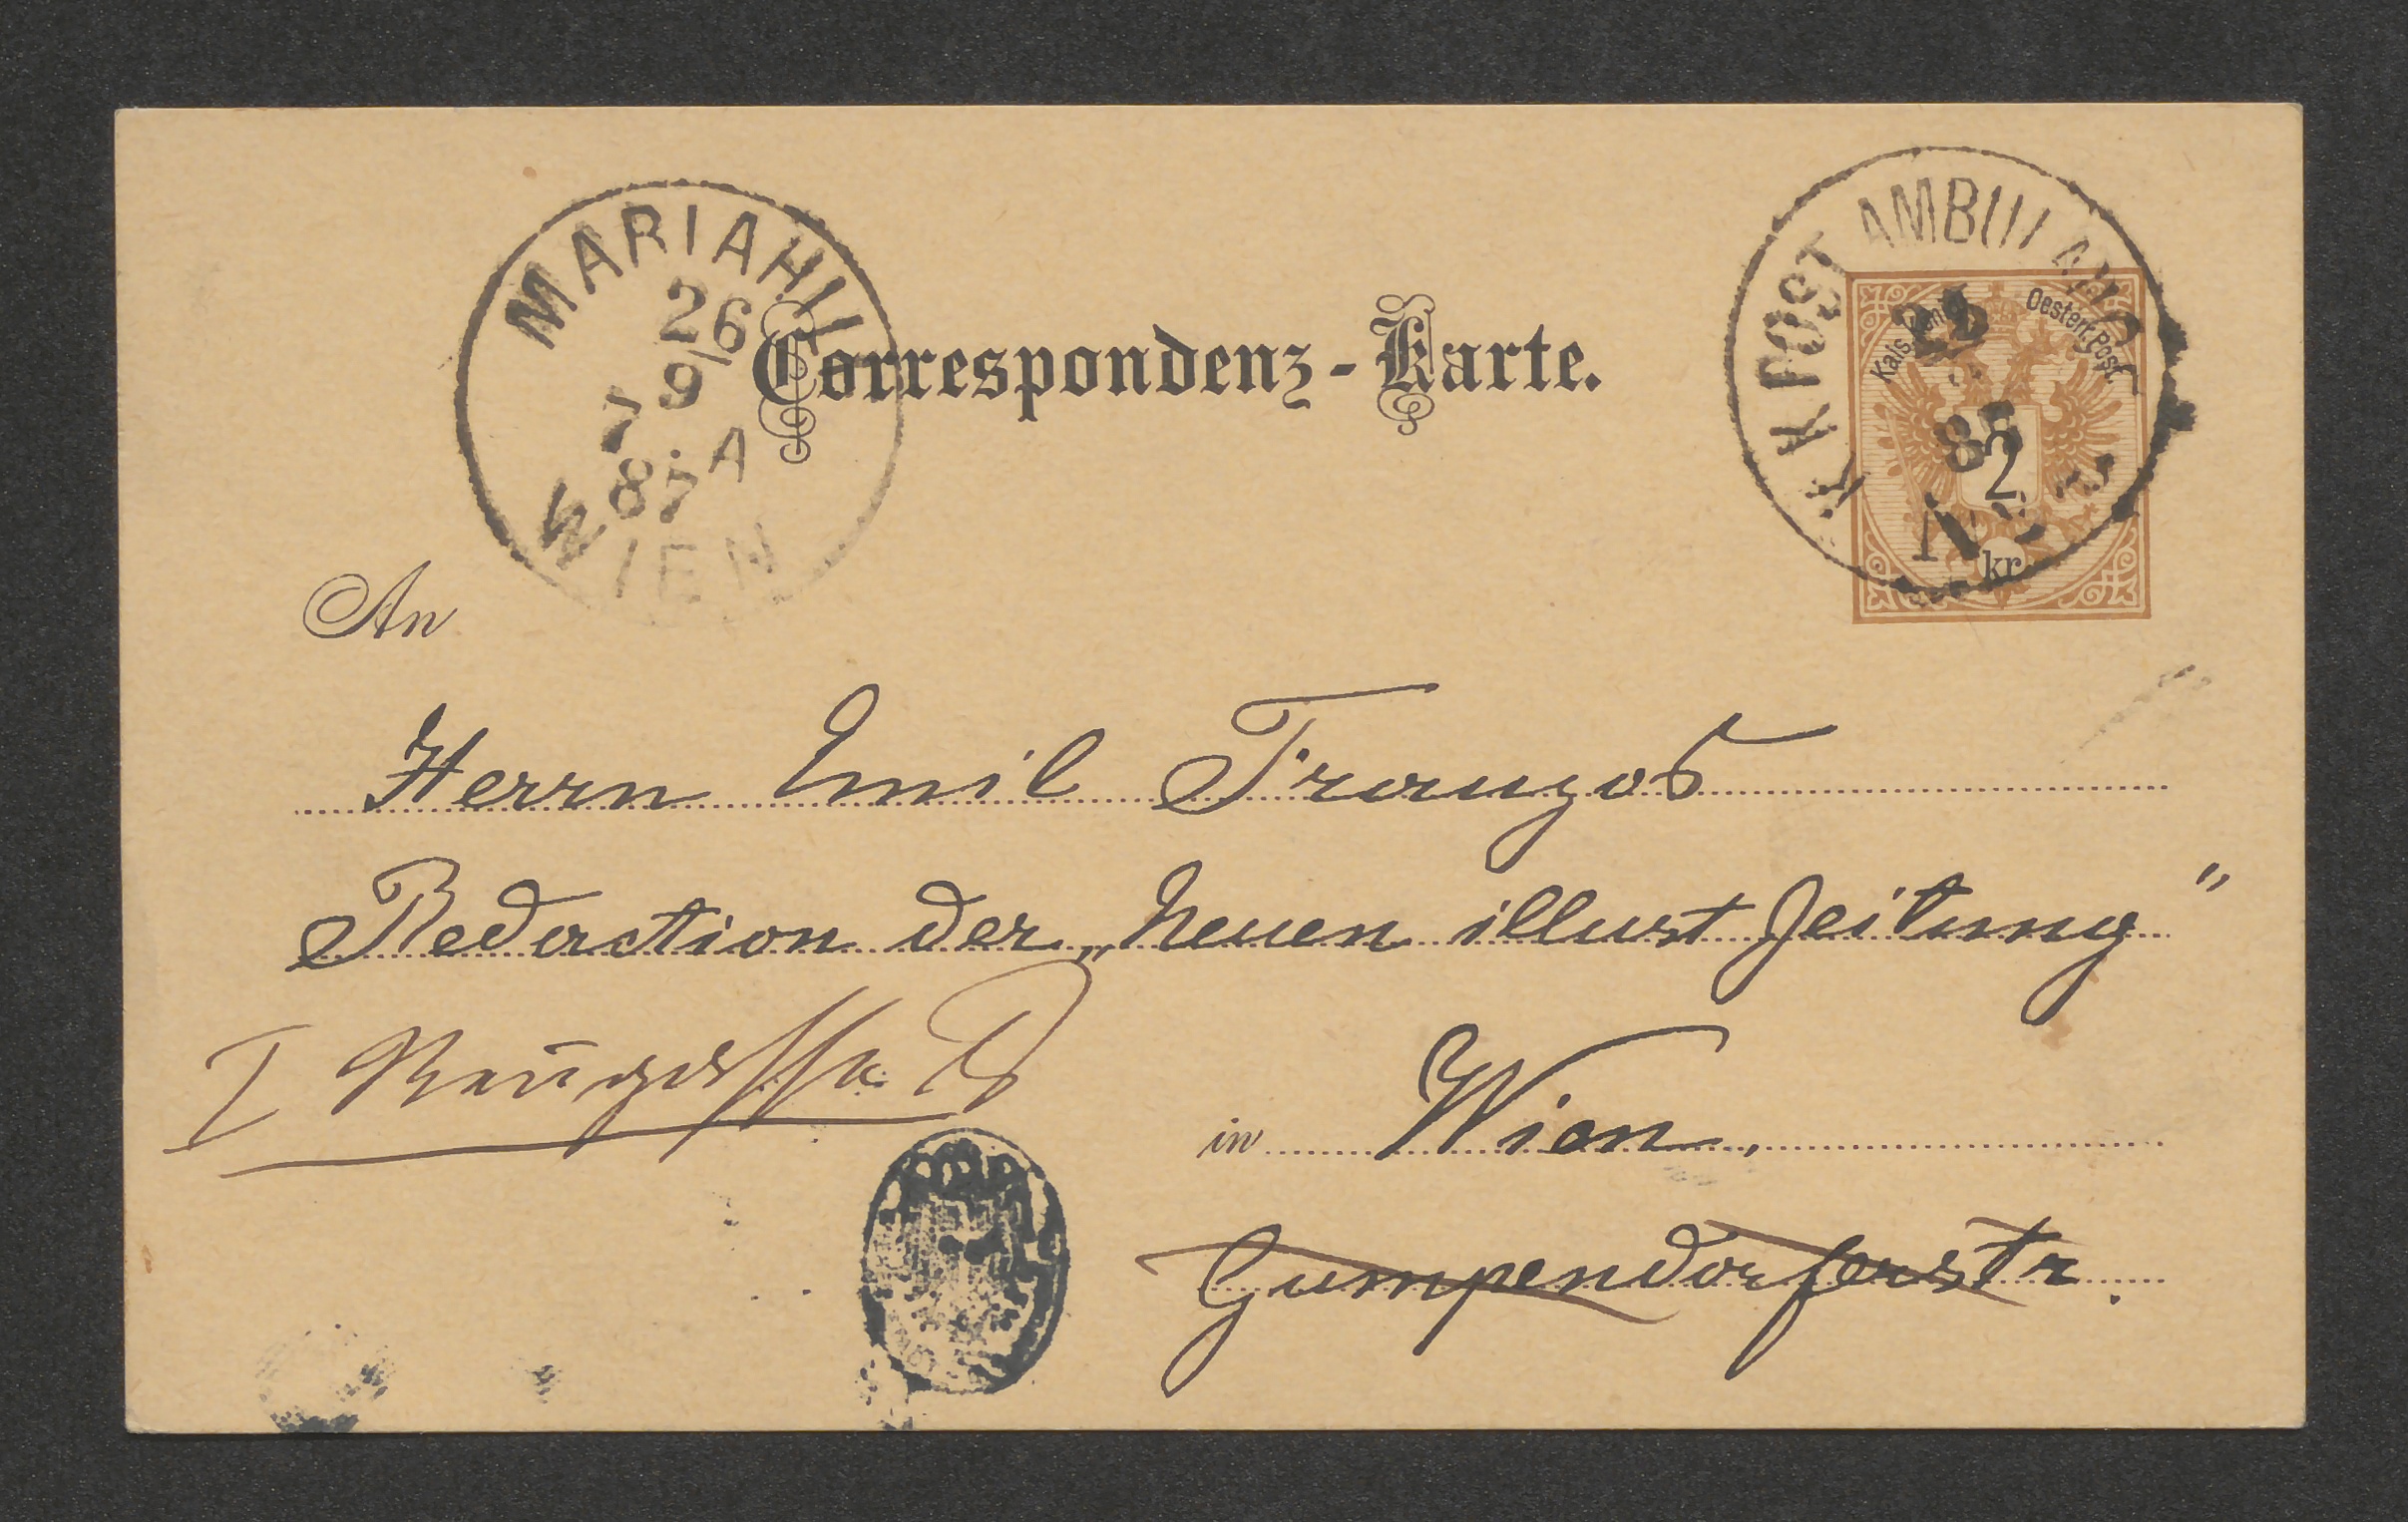 MARIAHILF
26
9
7 A
87
WIEN
Correspondenz-Karte.
K K POST AMBULANCE
85
Nº
Kais. Königl. Oesterr. Post.
2
kr.
An
Herrn Emil Franzos
Redaction der „neuen illust Zeitung"
I Neugasse
in Wien,
Gumpendorferstr.